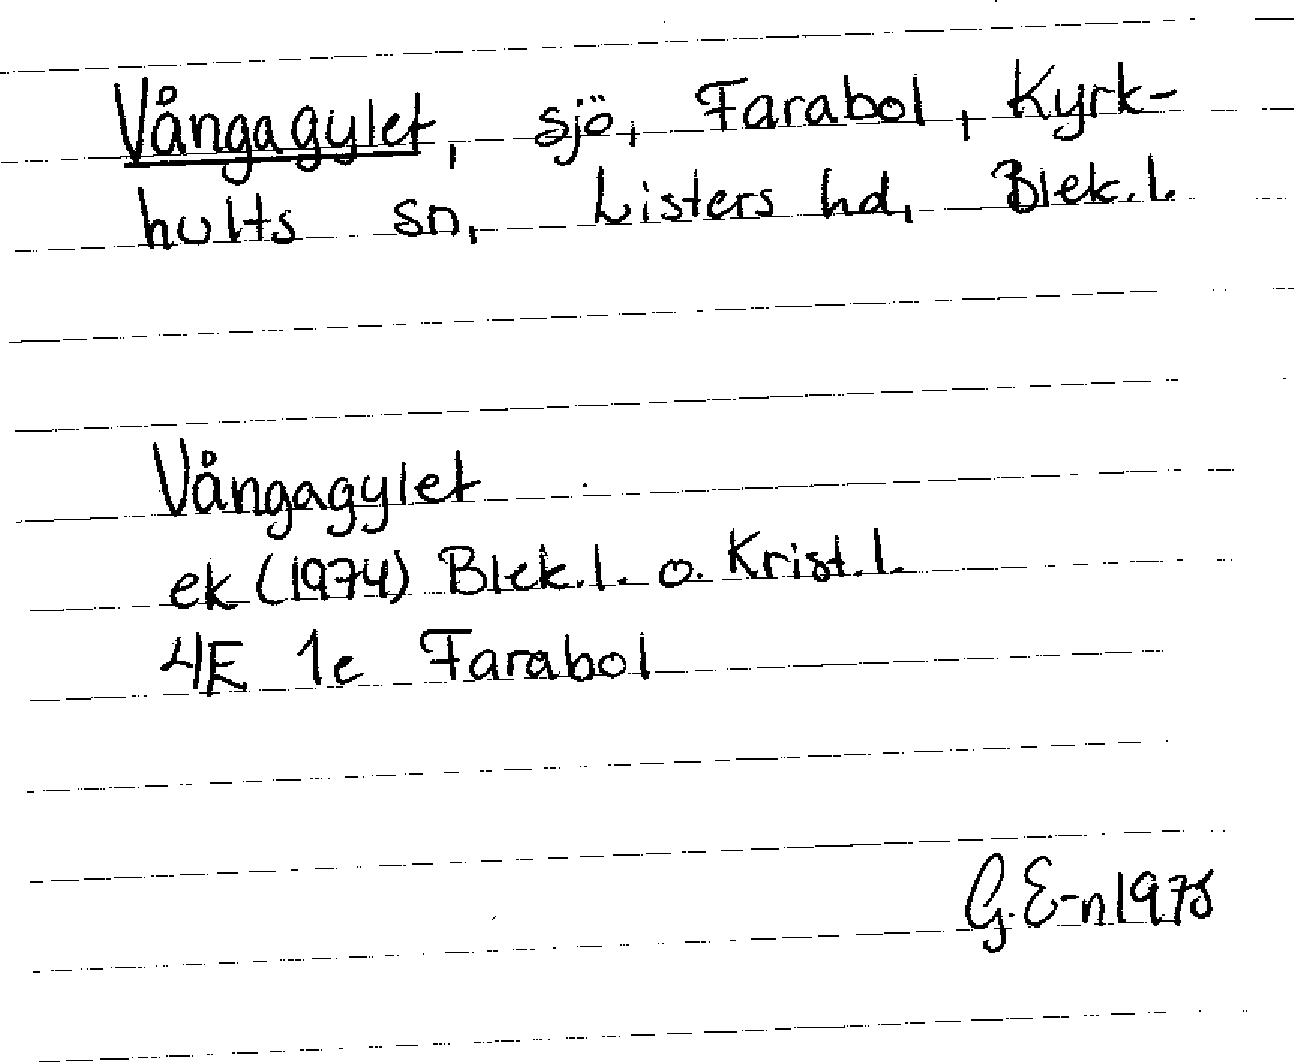 Vångagylet, sjö, Farabol, Kyrk-
hults sn, Listers hd, Blek.l.
Vångagylet
ek (1974) Blek.l. o. Krist.l.
4E 1e Farabol
G.E-n 1975